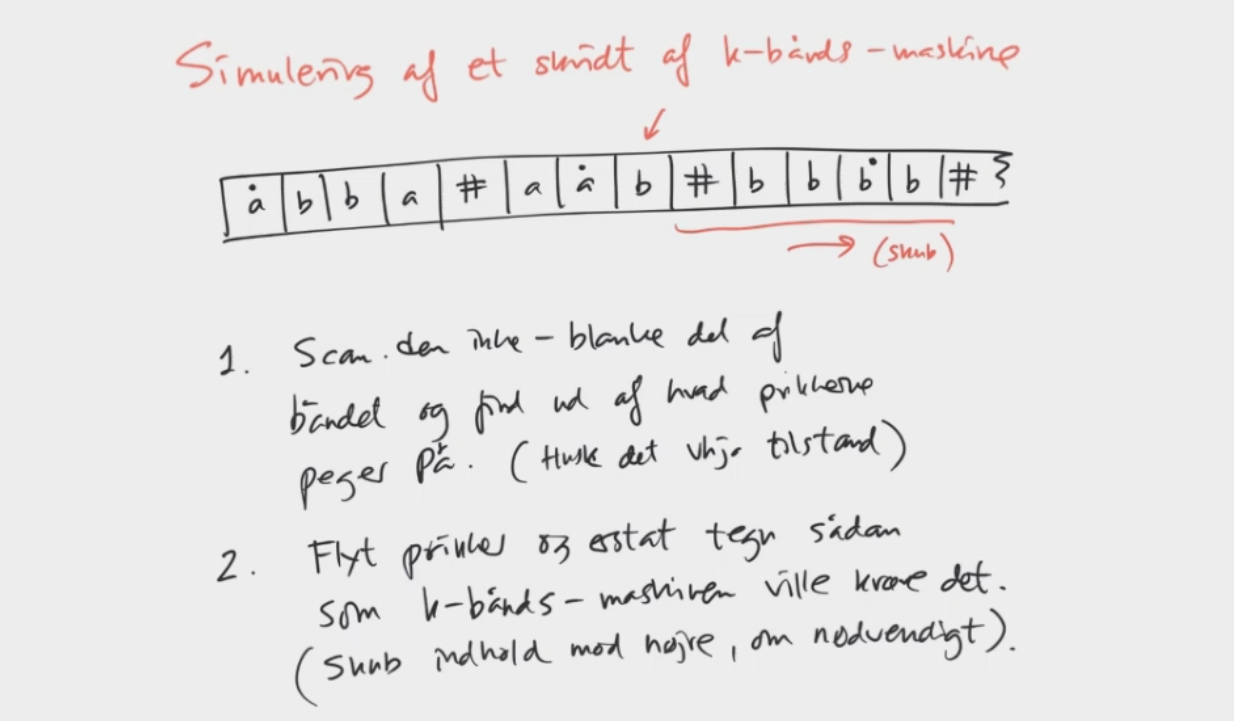 Simulering af et skridt af k-bånds-maskine
ȧ b b a # a ȧ b # b b ḃ b #
(skub)
1. Scan den ikke-blanke del af
båndet og find ud af hvad prikkerne
peger på. (Husk det vhja tilstand)
2. Flyt prikker og erstat tegn sådan
som k-bånds-maskinen ville kræve det.
(Skub indhold mod højre, om nødvendigt).